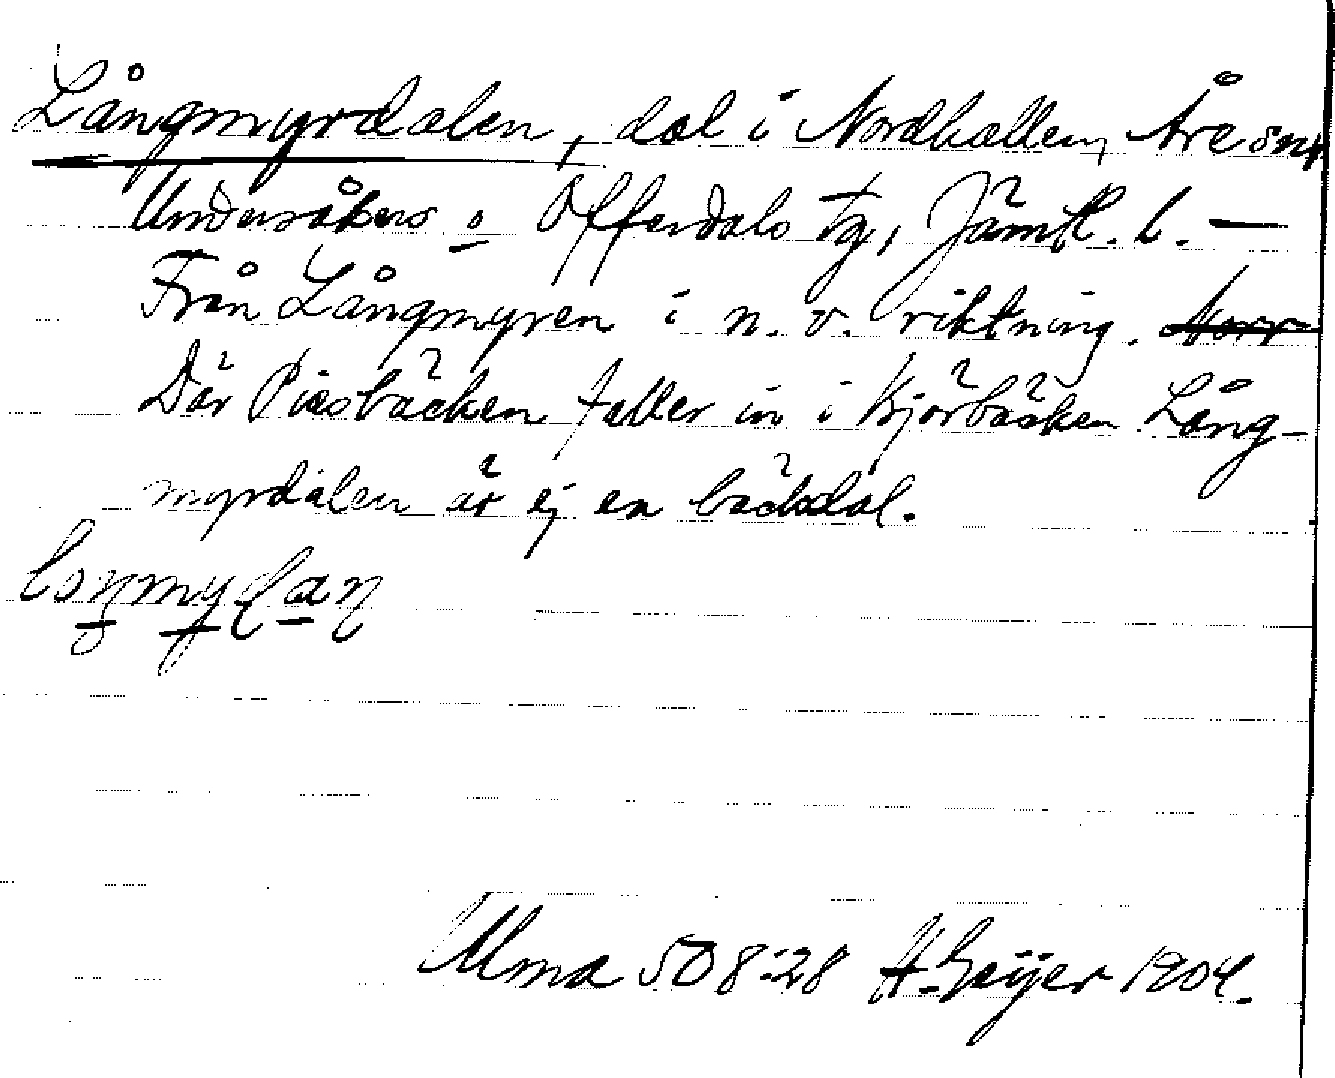 Långmyrdalen, dal i Nordhallen, Åre sn,
Undersåkers o Offerdals tg, Jämtl. l. —
Från Långmyren i n. v. riktning. Norr
Där Piesbäcken faller in i Kjörbäcken Lång-
myrdalen är ej en bäckdal.
Ulma 508:28 H. Geijer 1904.